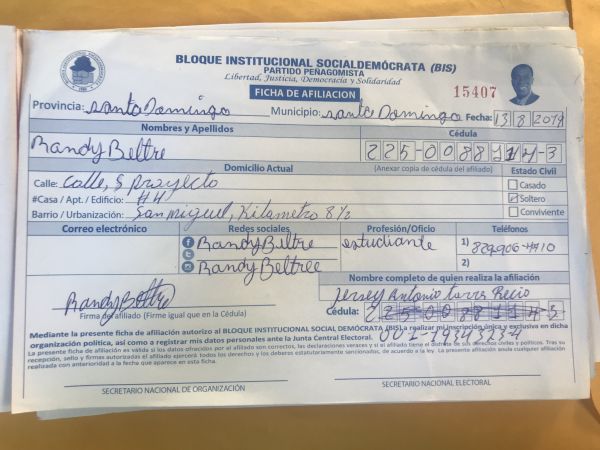 BLOQUE INSTITUCIONAL SOCIALDEMÓCRATA (BIS)
PARTIDO PEÑAGOMISTA
Libertad, Justicia, Democracia y Solidaridad
FICHA DE AFILIACION
15407
Provincia: Santo Domingo Municipio: Santo Domingo Fecha: 13 8 2019
Nombres y Apellidos Cédula
Randy Beltre 225-0088114-3
Domicilio Actual (Anexar copia de cédula del afiliado) Estado Civil
Calle: Calle, S proyecto Casado
#Casa / Apt. / Edificio: #4 Soltero
Barrio / Urbanización: San miguel, Kilametro 8½ Conviviente
Correo electrónico Redes sociales Profesión/Oficio Teléfonos
Randy Beltre estudiante 1) 829-906-4710
Randy Beltree 2)
Nombre completo de quien realiza la afiliación
Randy Beltre Jersey Antonio torres Recio
Firma de afiliado (Firme igual que en la Cédula) Cédula: 225-0088114-3
Mediante la presente ficha de afiliación autorizo al BLOQUE INSTITUCIONAL SOCIAL DEMÓCRATA (BIS) a realizar mi inscripción única y exclusiva en dicha
organización política, así como a registrar mis datos personales ante la Junta Central Electoral.
La presente afiliación es válida si los datos ofrecidos por el afiliado son correctos, las declaraciones veraces y si el afiliado tiene el disfrute de sus derechos civiles y políticos. Tras su
recepción, sello y firmas autorizadas el afiliado ejercerá todos los derechos y los deberes estatutariamente sancionados, de acuerdo a la ley. La presente afiliación anula cualquier afiliación
realizada con anterioridad a la fecha que aparece en esta ficha.
SECRETARIO NACIONAL DE ORGANIZACIÓN SECRETARIO NACIONAL ELECTORAL